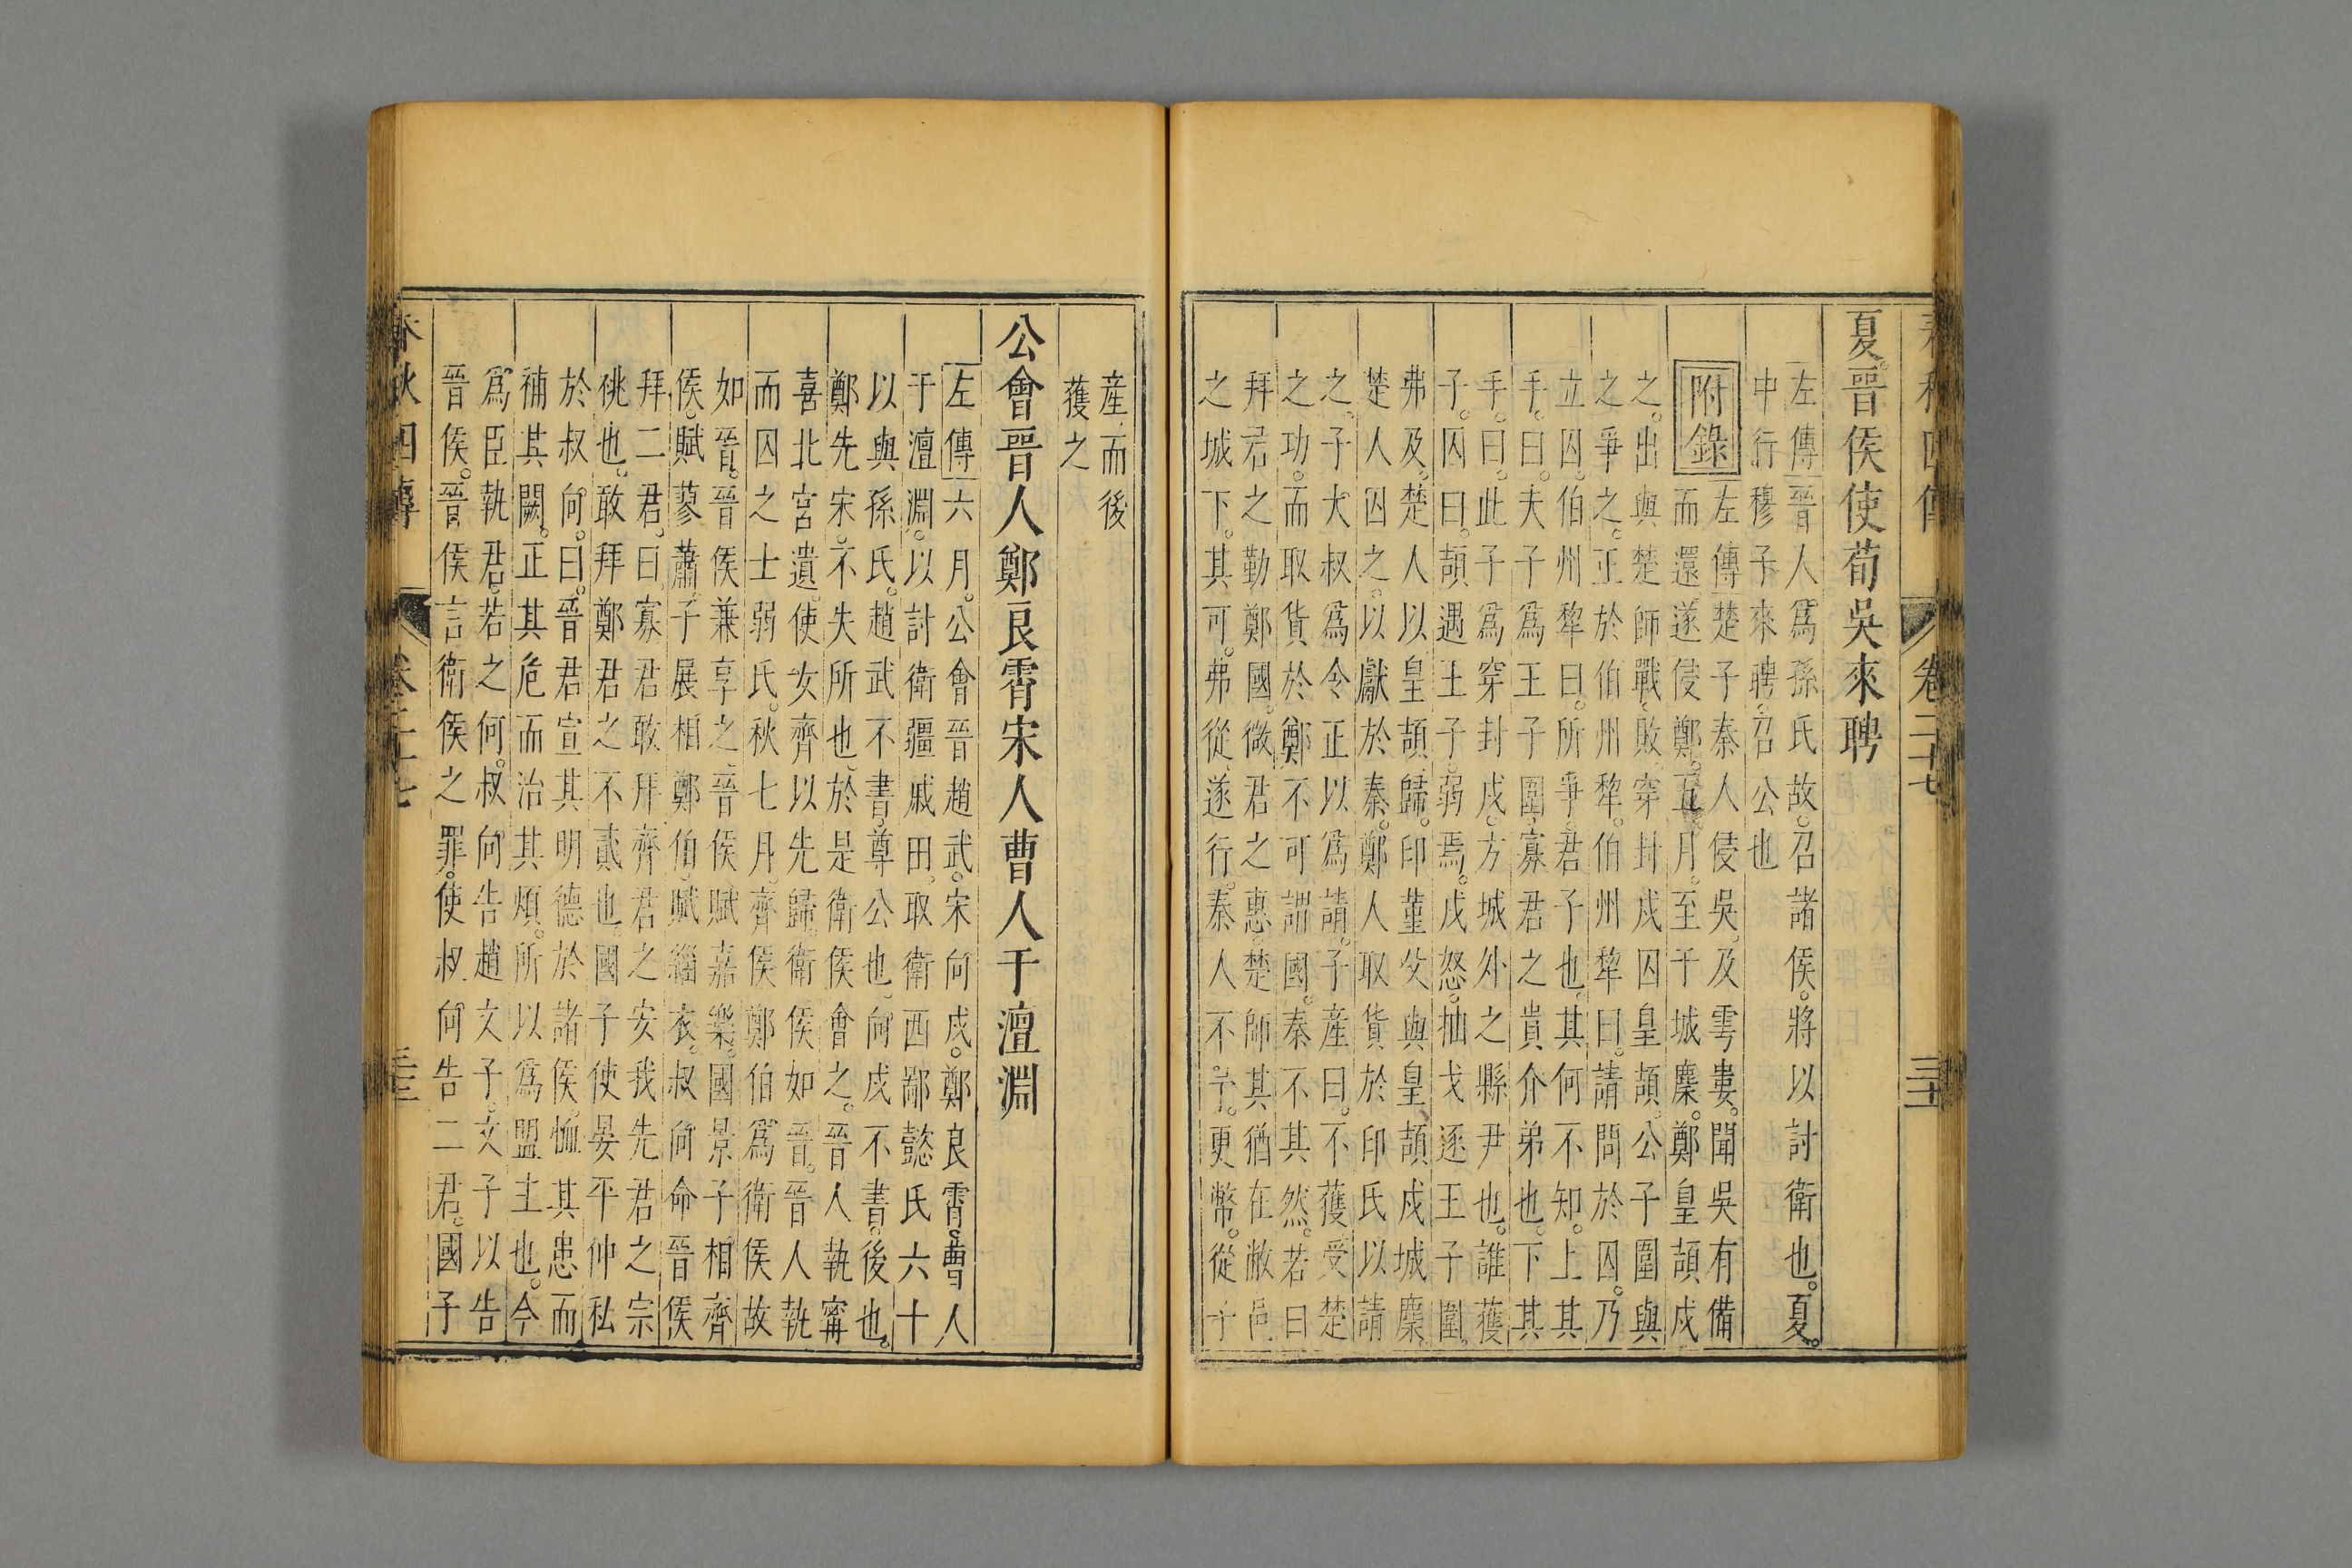 春秋四傳 卷二十七 三十二
夏。晉侯使荀吳來聘
左傳晉人爲孫氏故。召諸侯。將以討衛也。夏。
中行穆子來聘。召公也
附錄
左傳楚子秦人侵吳。及雩婁。聞吳有備
而還。遂侵鄭。五月。至于城麇。鄭皇頡戍
之。出與楚師戰。敗。穿封戌囚皇頡。公子圍與
之爭之。正於伯州犂。伯州犂曰。請問於囚。乃
立囚。伯州犂曰。所爭。君子也。其何不知。上其
手。曰。夫子爲王子圍。寡君之貴介弟也。下其
手。曰。此子爲穿封戌。方城外之縣尹也。誰獲
子。囚曰。頡遇王子弱焉。戌怒。抽戈逐王子圍。
弗及。楚人以皇頡歸。印堇父與皇頡戍城麇。
楚人囚之。以獻於秦。鄭人取貨於印氏以請
之。子大叔爲令正以爲請。子産曰。不獲受楚
之功。而取貨於鄭不可謂國。秦不其然。若曰
拜君之勤鄭國。微君之惠。楚師其猶在敝邑
之城下。其可。弗從。遂行。秦人不予。更幣。從子
産而後
獲之
公會晉人鄭良霄宋人曹人于澶淵
左傳六月。公會晉趙武。宋向戌。鄭良霄。曹人
于澶淵。以討衛疆戚田。取衛西鄙懿氏六十
以與孫氏。趙武不書。尊公也。向戌不書。後也。
鄭先宋。不失所也。於是衛侯會之。晉人執甯
喜北宮遺。使女齊以先歸。衛侯如晉。晉人執
而囚之士弱氏。秋七月。齊侯鄭伯爲衛侯故
如晉。晉侯兼享之。晉侯賦嘉樂。國景子相齊
侯。賦蓼蕭。子展相鄭伯。賦緇衣。叔向命晉侯
拜二君。曰。寡君敢拜齊君之安我先君之宗
祧也。敢拜鄭君之不貳也。國子使晏平仲私
於叔向。曰。晉君宣其明德於諸侯。恤其患而
補其闕。正其危而治其煩。所以爲盟主也。今
爲臣執君。若之何。叔向告趙文子。文子以告
晉侯。晉侯言衛侯之罪。使叔向告二君。國子
春秋四傳 卷二十七 三十三